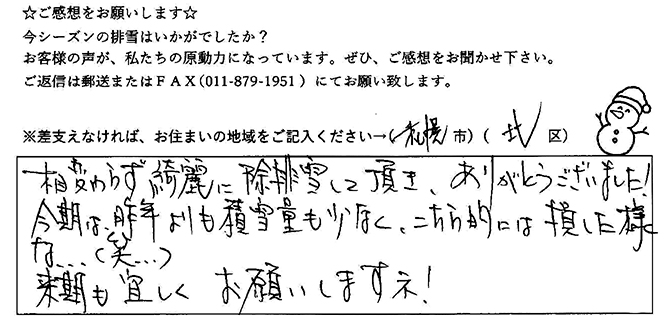 ☆ご感想をお願いします☆
今シーズンの排雪はいかがでしたか？
お客様の声が、私たちの原動力になっています。ぜひ、ご感想をお聞かせ下さい。
ご返信は郵送またはＦＡＸ(011-879-1951）にてお願い致します。
※差支えなければ、お住まいの地域をご記入ください→(札幌市）（北区）
相変わらず綺麗に除排雪して頂き、ありがとうございました！
今期は、昨年よりも積雪量も少なく、こちら的には損した様
な…（笑…）
来期も宜しくお願いしますネ！